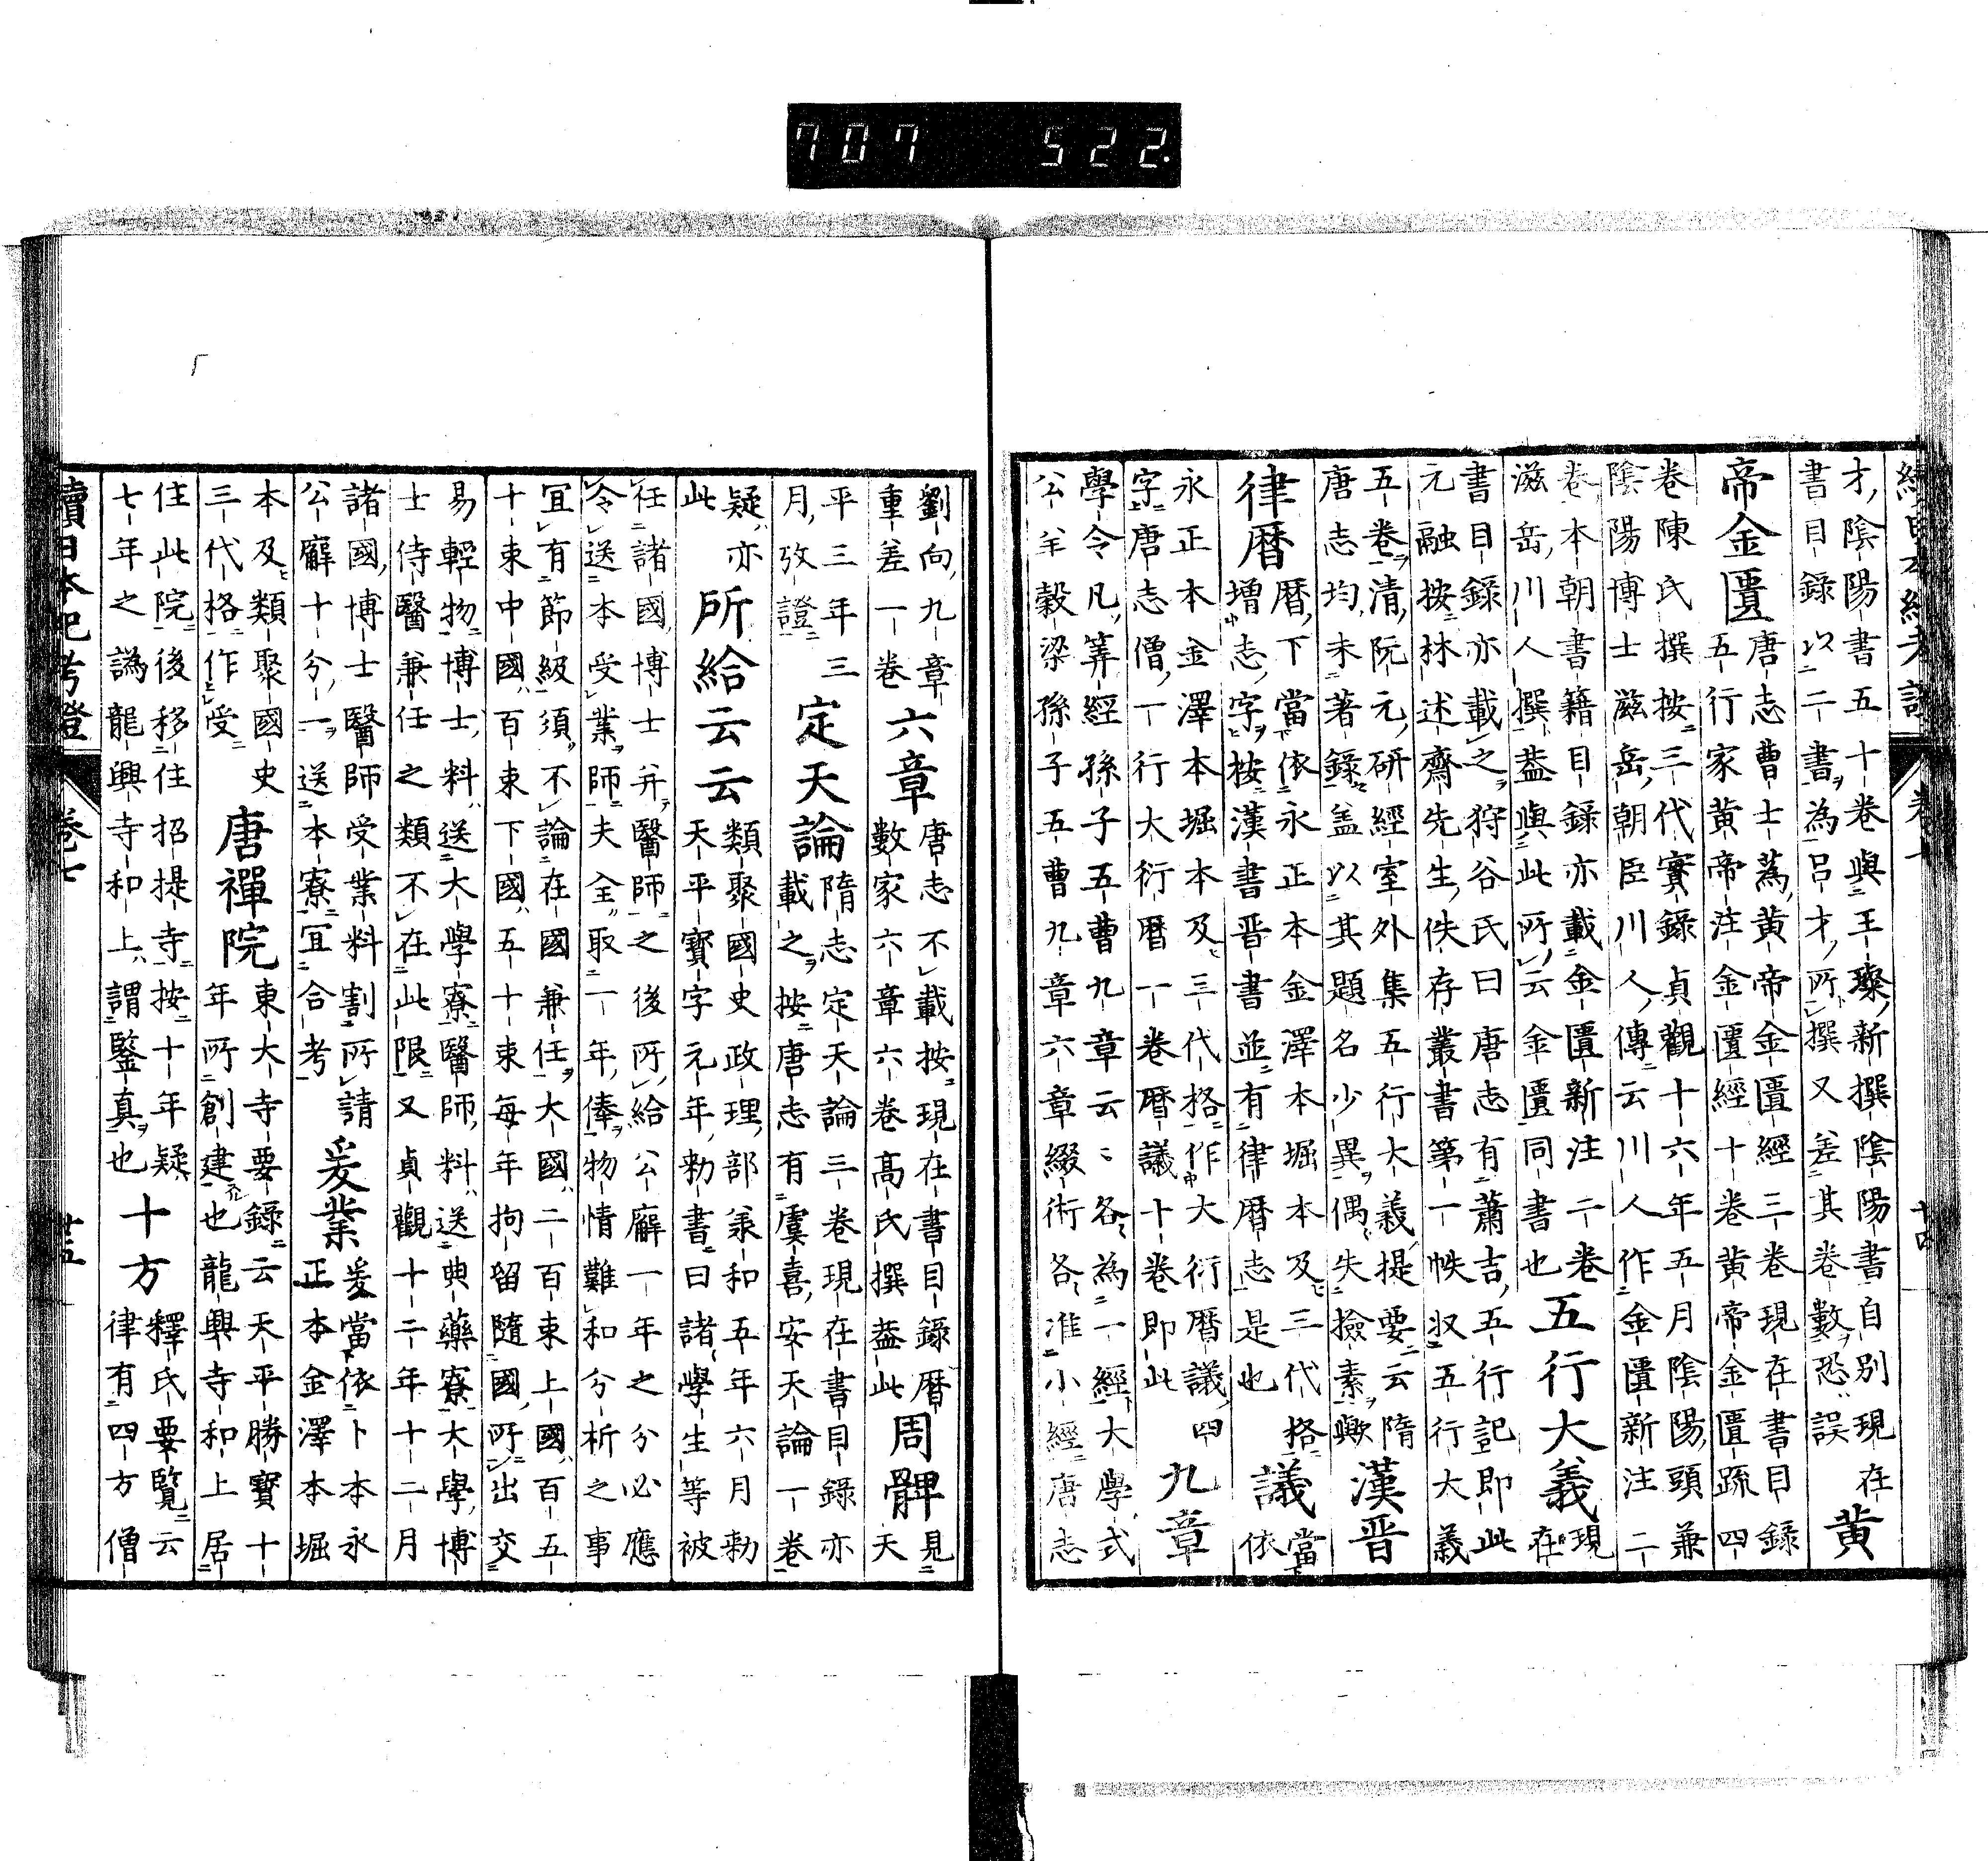 707 522.
才陰陽書五十卷與王璨新撰陰陽書自別現在
書目錄以二書為呂才所撰又差其卷數恐誤
黃
帝金匱
唐志曹士蒍黃帝金匱經三卷現在書目錄
五行家黃帝注金匱經十卷黃帝金匱疏四
卷陳氏撰按三代實錄貞觀十六年五月陰陽頭兼
陰陽博士滋岳朝臣川人傳云川人作金匱新注二
卷本朝書籍目錄亦載金匱新注二卷
滋岳川人撰蓋與此所云金匱同書也
五行大義
現
在
書目錄亦載之狩谷氏曰唐志有蕭吉五行記即此
元融按林述齋先生佚存叢書第一帙收五行大義
五卷清阮元研經室外集五行大義提要云隋
唐志均未著錄蓋以其題名少異偶失撿素歟
漢晋
律暦
暦下當依永正本金澤本堀本及三代格
增志字按漢書晋書並有律暦志是也
議
當
依
永正本金澤本堀本及三代格作大衍暦議四
字唐志僧一行大衍暦一卷暦議十卷即此
九章
學令凡筭經孫子五曹九章云〻各為一經大學式
公羊穀梁孫子五曹九章六章綴術各准小經唐志
劉向九章
重差一卷
六章
唐志不載按現在書目錄暦
數家六章六卷高氏撰蓋此
周髀
見
天
平三年三
月攷證
定天論
隋志定天論三卷現在書目錄亦
載之按唐志有虞喜安天論一卷
疑亦
此
所給云云
類聚國史政理部兼和五年六月勅
天平寳字元年勅書曰諸學生等被
任諸國博士并醫師之後所給公廨一年之分必應
令送本受業師夫全取二一年俸物情難和分析之事
宜有節級須不論在國兼任大國二百束上國百五
十束中國百束下國五十束每年拘留隨國所出交
易輕物博士料送大學寮醫師料送典藥寮大學博
士侍醫兼任之類不在此限又貞觀十二年十二月
諸國博士醫師受業料割所請
公廨十分一送本寮宜合考
爰業
爰當依卜本永
正本金澤本堀
本及類聚國史
三代格作受
唐禪院
東大寺要錄云天平勝寳十
年所創建也龍興寺和上居
住此院後移住招提寺按十年疑
七年之譌龍興寺和上謂鑒真也
十方
釋氏要覧云
律有四方僧
續日本紀考證
卷七
十五